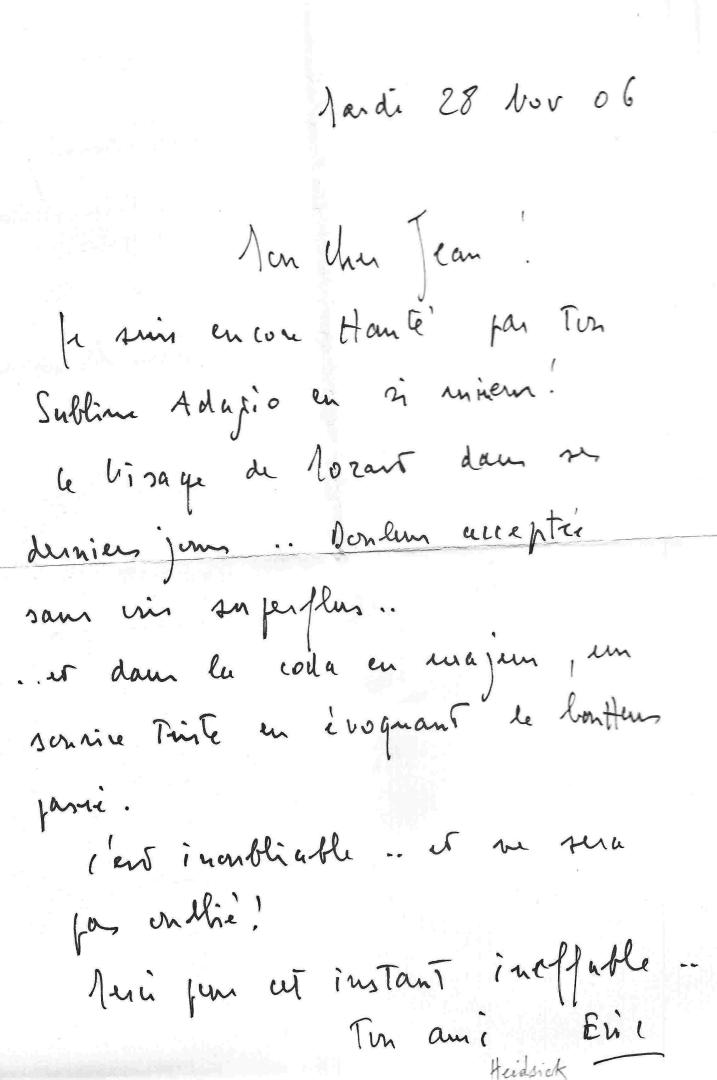 Mardi 28 Nov 06
Mon cher Jean !
Je suis encore Hanté par Ton
Sublime Adagio en si mineur !
Le Visage de Mozart dans ses
derniers jours .. Douleur acceptée
sans cris superflus ..
.. et dans la coda en majeur, un
sourire Triste en évoquant le bonHeur
passé .
C'est inoubliable .. et ne sera
pas oublié !
Merci pour cet instant ineffable ..
Ton ami Eric
Heidsick